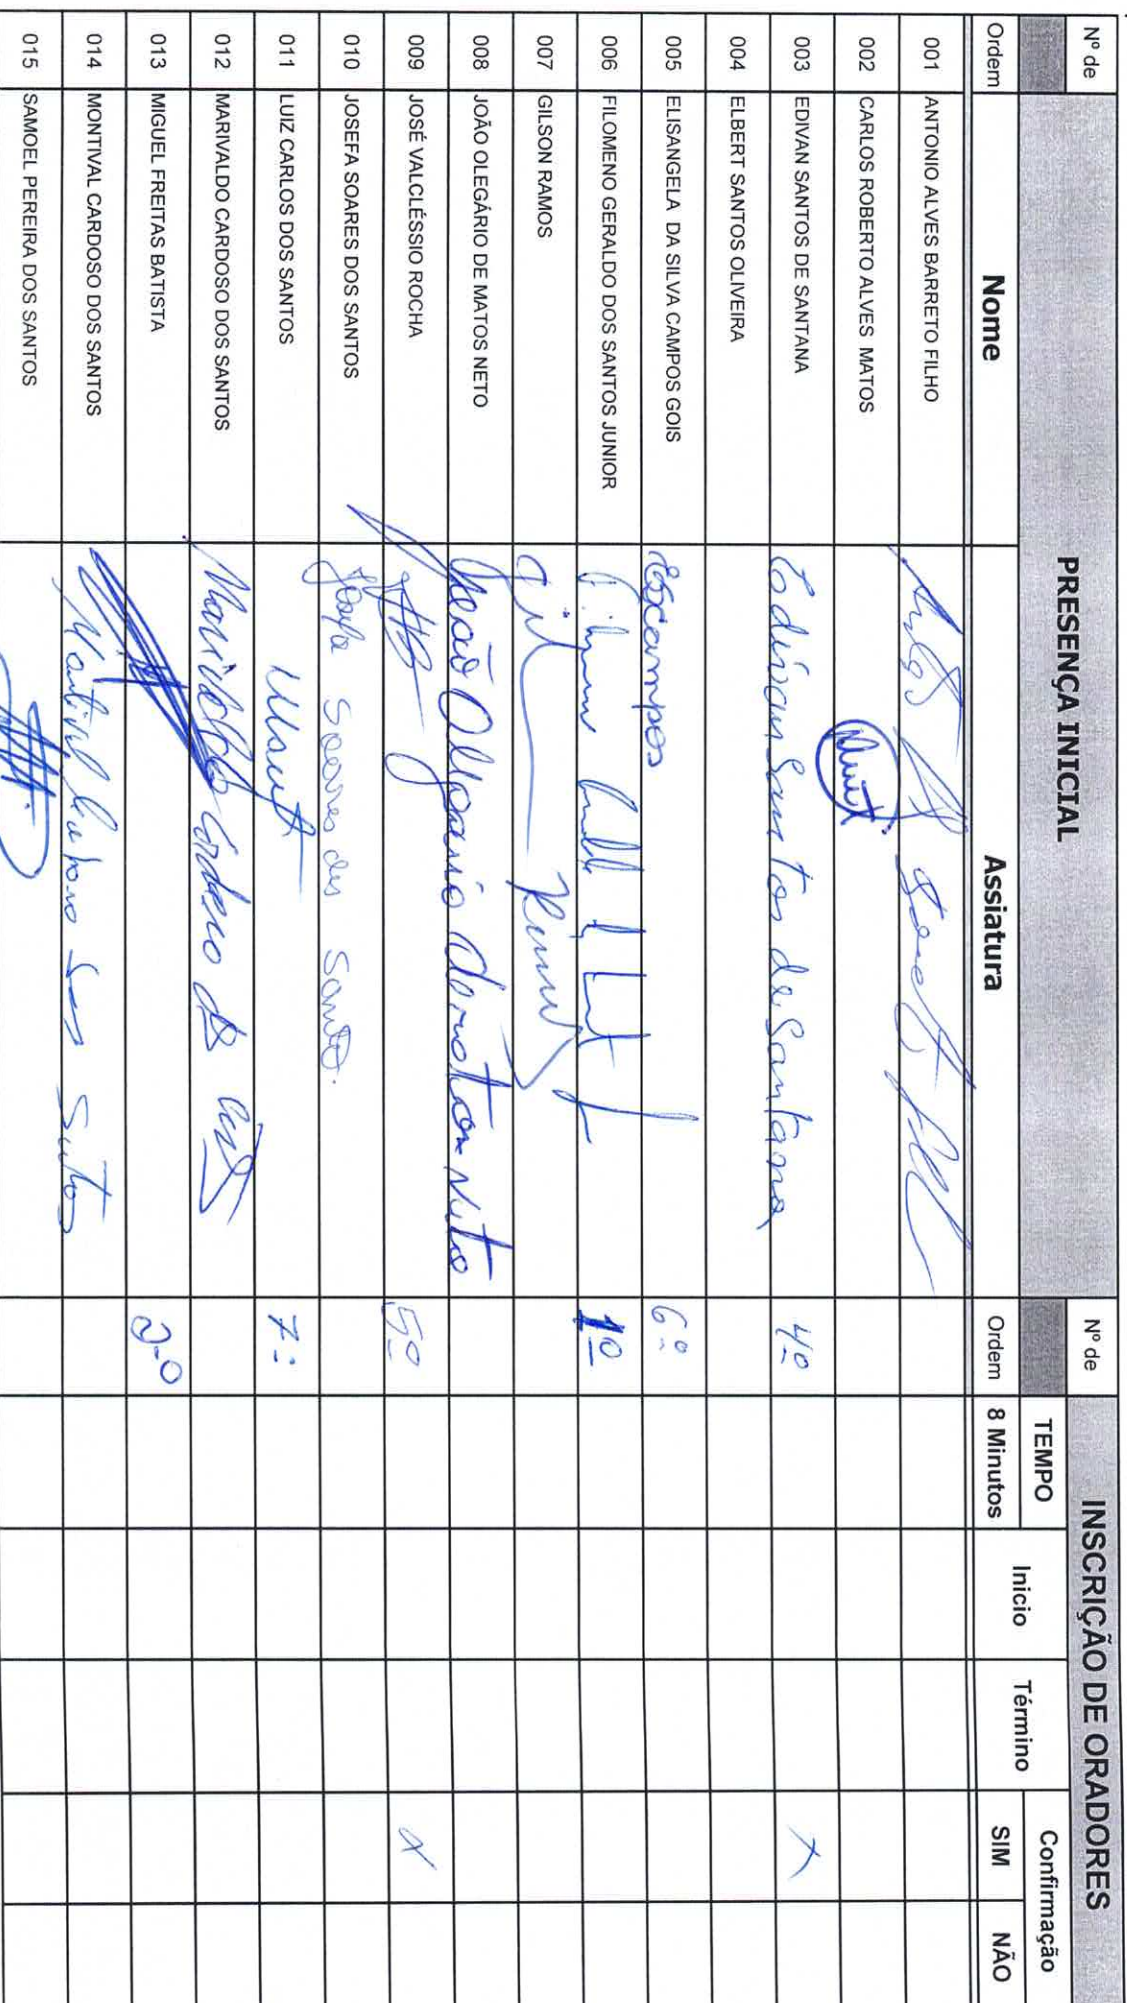 Nº de PRESENÇA INICIAL Nº de INSCRIÇÃO DE ORADORES
TEMPO Confirmação
Ordem Nome Assiatura Ordem 8 Minutos Inicio Término SIM NÃO
001 ANTONIO ALVES BARRETO FILHO
002 CARLOS ROBERTO ALVES MATOS
003 EDIVAN SANTOS DE SANTANA Edivan Santos de Santana 4º X
004 ELBERT SANTOS OLIVEIRA
005 ELISANGELA DA SILVA CAMPOS GOIS Escampos 6º
006 FILOMENO GERALDO DOS SANTOS JUNIOR 1º
007 GILSON RAMOS
008 JOÃO OLEGÁRIO DE MATOS NETO João Olegário de matos Neto
009 JOSÉ VALCLÉSSIO ROCHA 5º X
010 JOSEFA SOARES DOS SANTOS Josefa Soares dos Santos.
011 LUIZ CARLOS DOS SANTOS 7º
012 MARIVALDO CARDOSO DOS SANTOS Marivaldo Cardoso dos
013 MIGUEL FREITAS BATISTA 2º
014 MONTIVAL CARDOSO DOS SANTOS Montival Cardoso dos Santos
015 SAMOEL PEREIRA DOS SANTOS